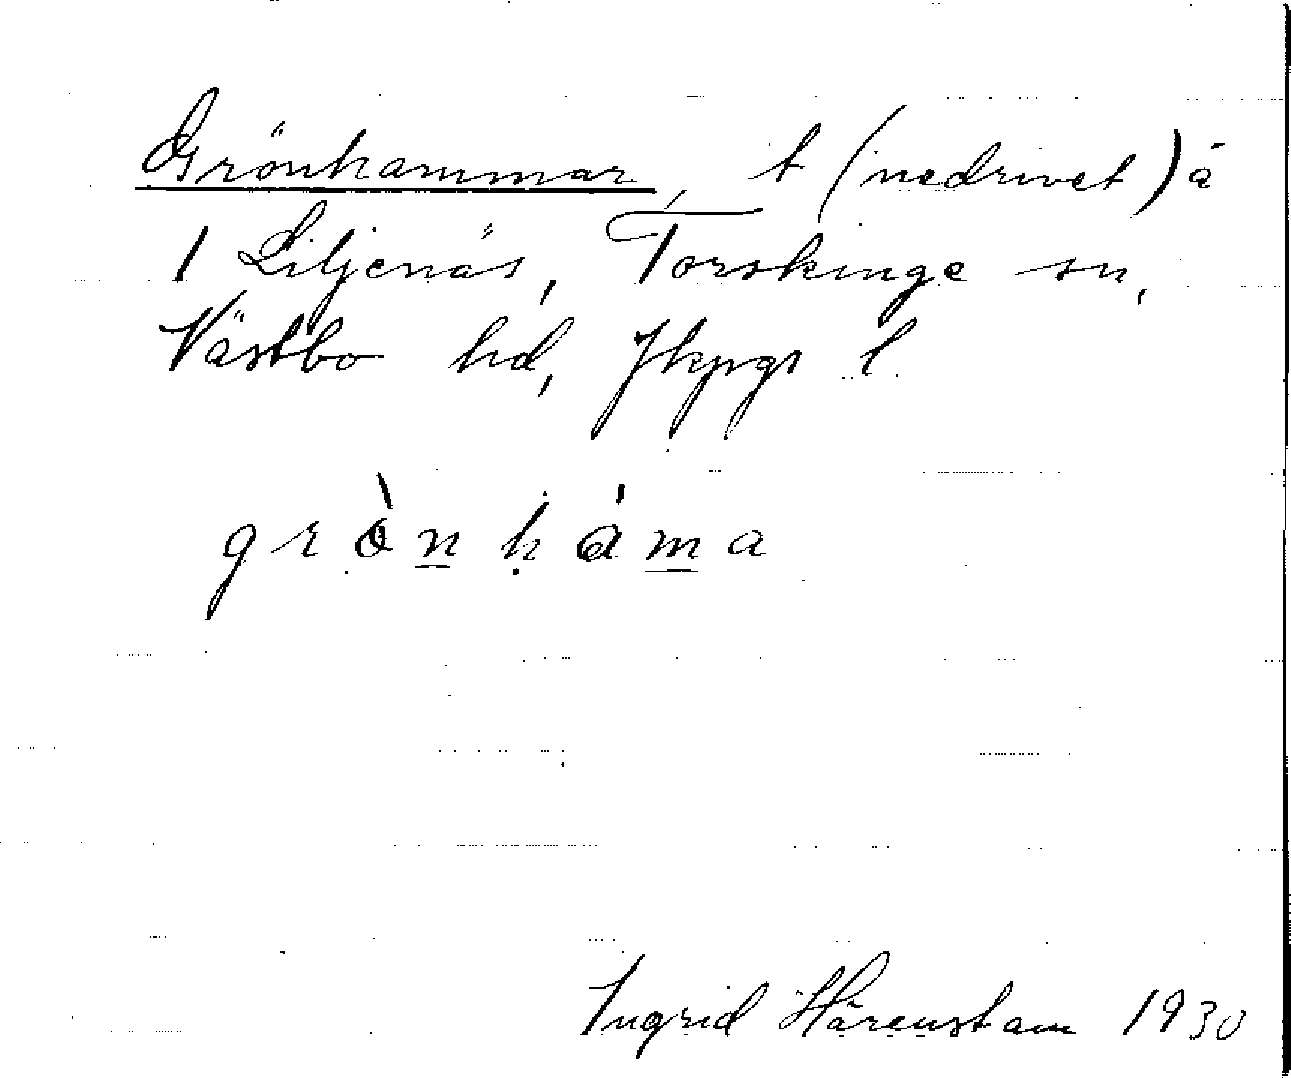 Grönhammar, t (nedrivet) å
1 Liljenäs, Torskinge sn,
Västbo hd, Jkpgs l
grö̀nháma
Ingrid Härenstam 1930